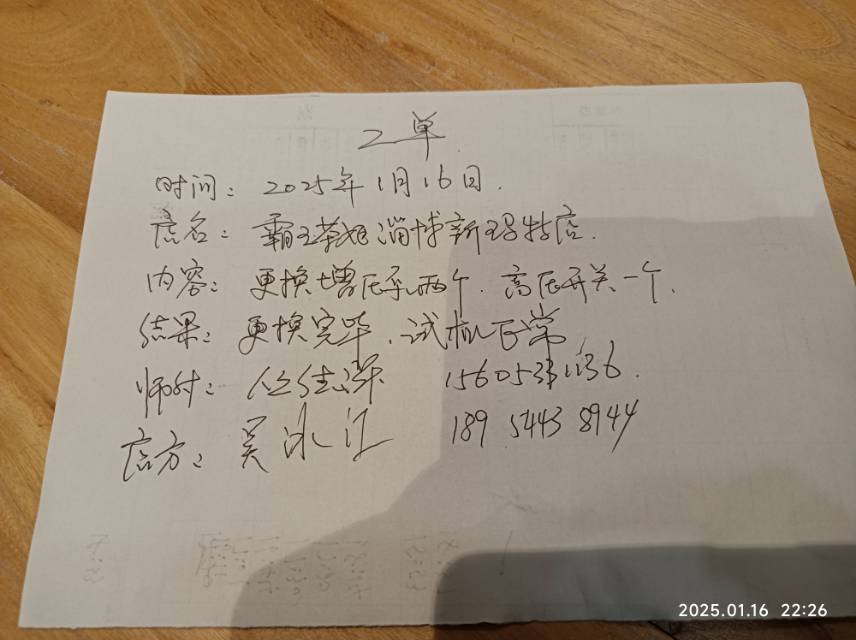 工单
时间：2025年1月16日.
店名：霸王茶姬淄博新玛特店.
内容：更换增压泵两个.高压开关一个.
结果：更换完毕，试机正常
师付：
店方：吴冰江 189 5443 8944
2025.01.16 22:26